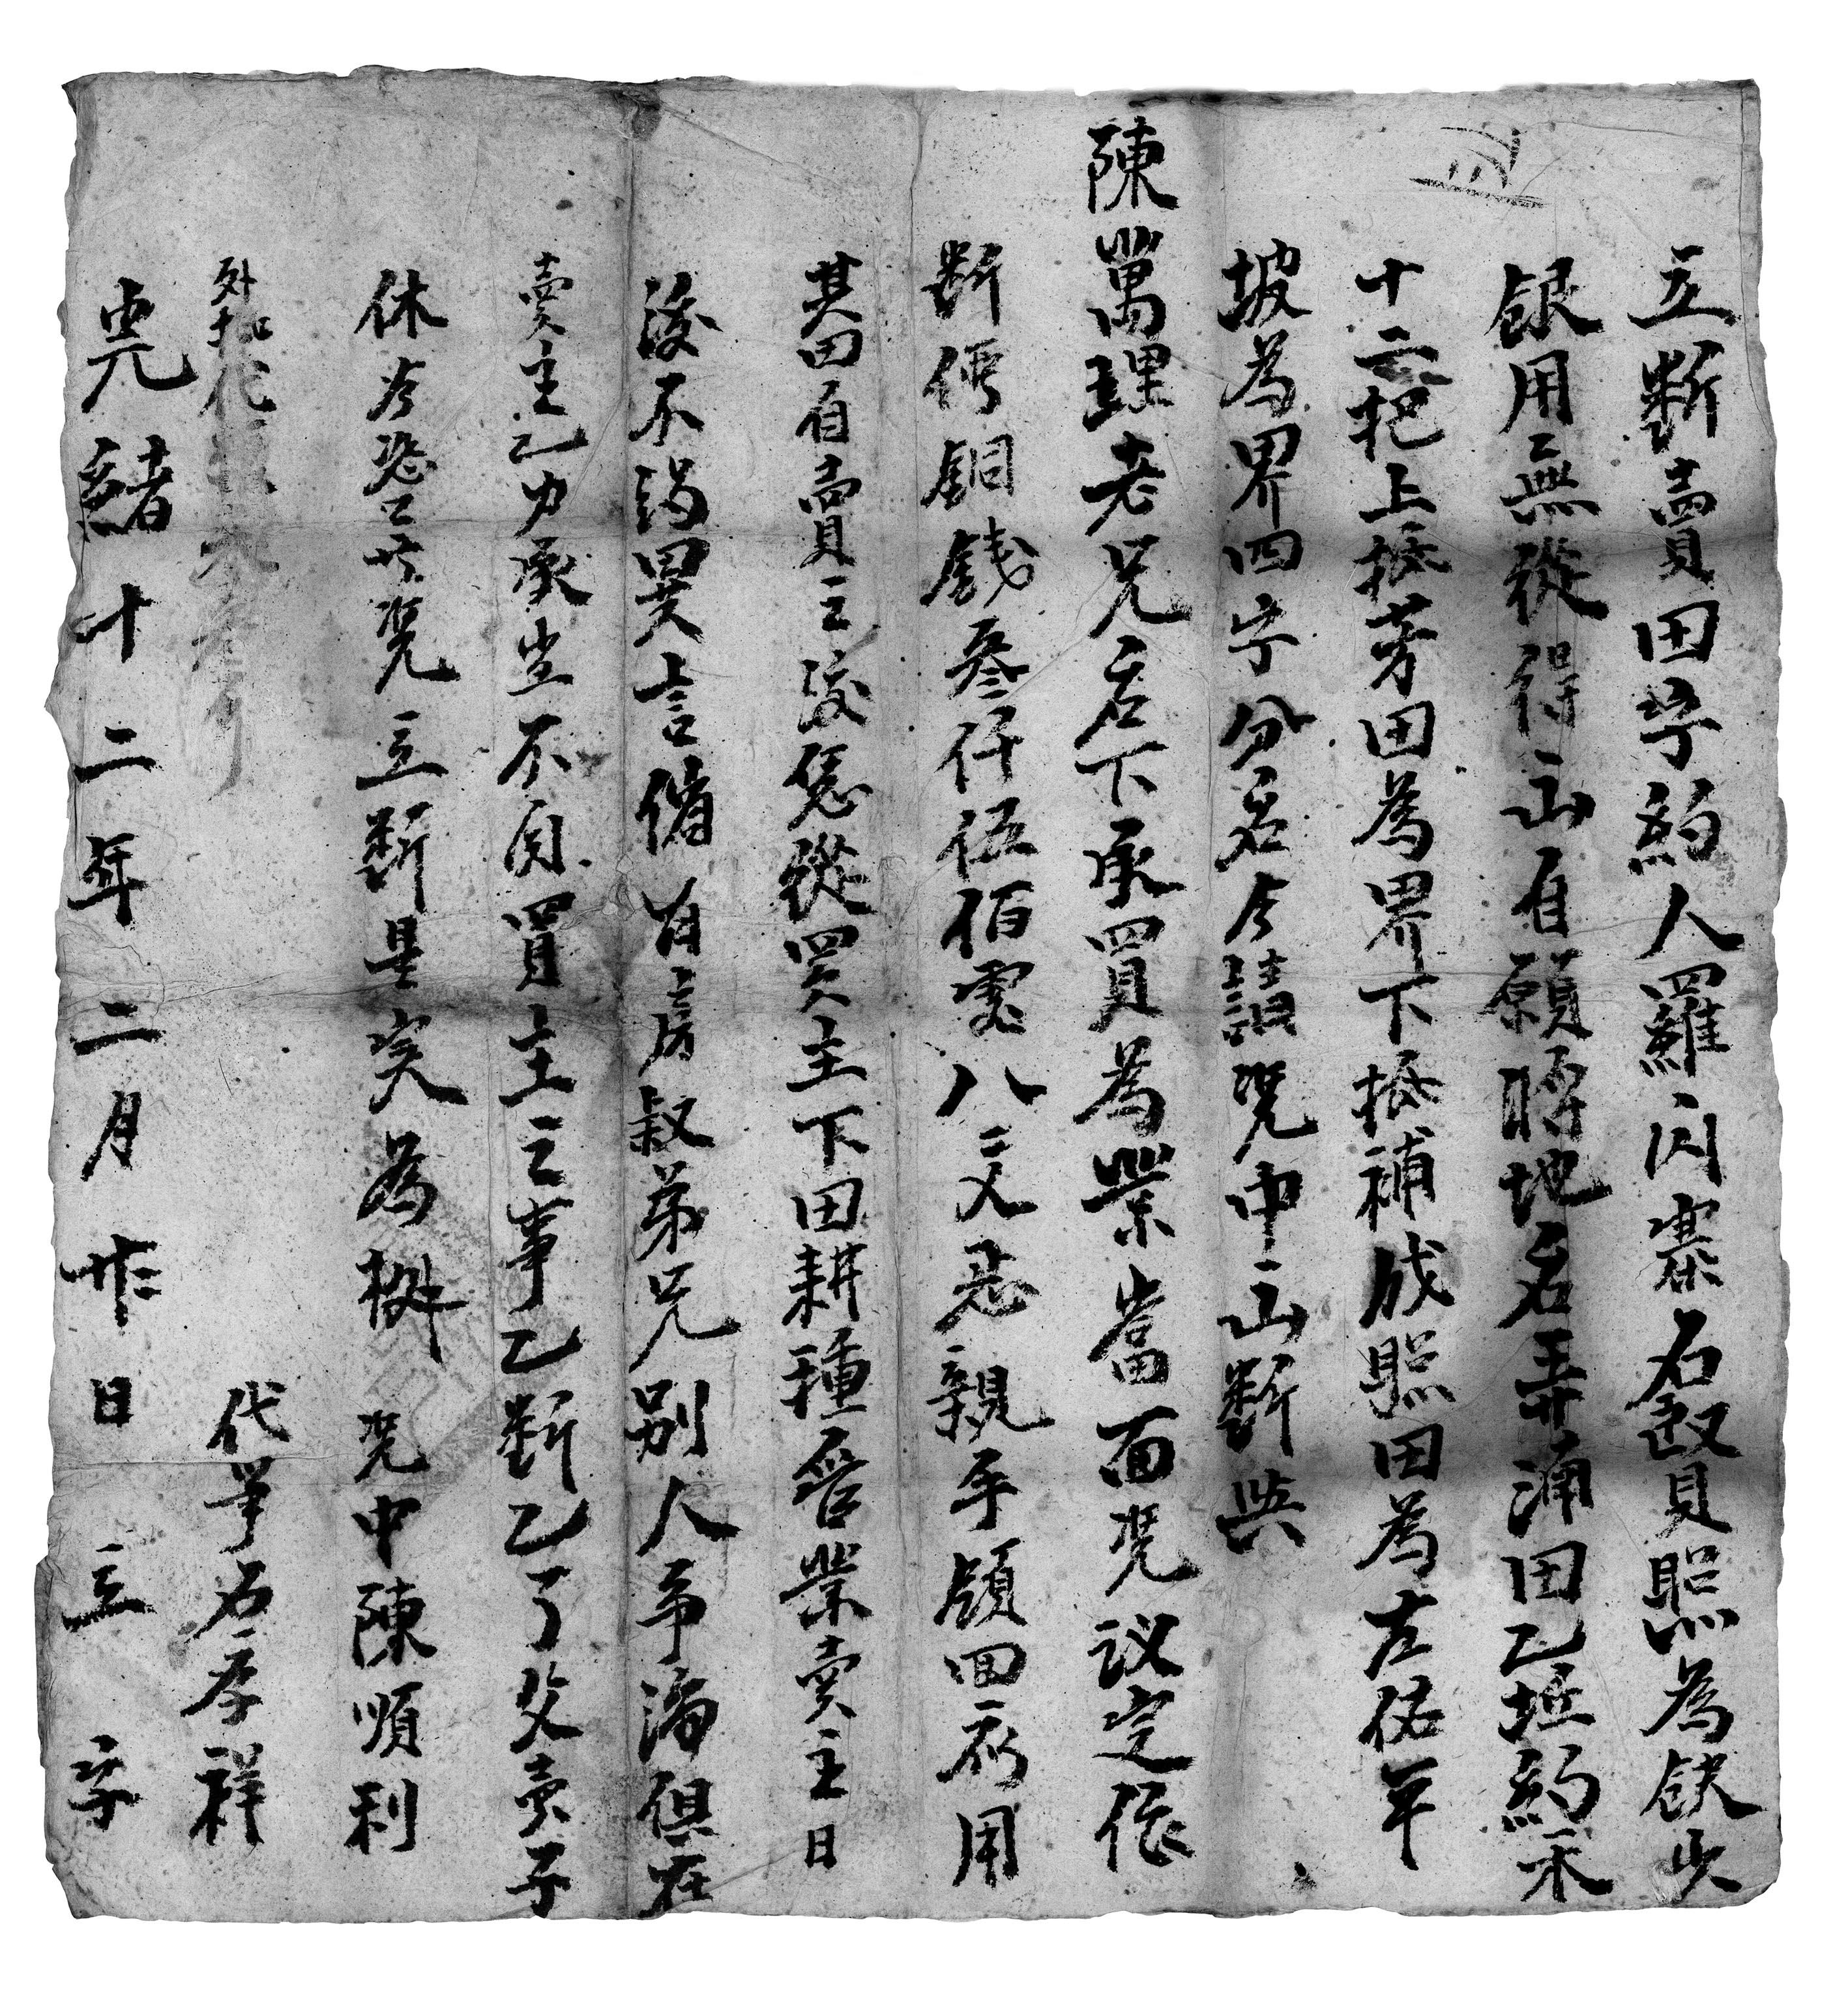 立斷賣田字約人羅闪寨石설貝照為缺少
銀用無從得出自願將地名弄涌田乙坵約禾
十二把上抵芳田為界下抵補成照田為左佑平
坡為界四字分名今請凭中出斷與
陳萬理老兄名下承買為業當面凭议定作
斷價銅錢叁仟伍佰零八文丢親手領回家用
其田自賣之後恁從買主下田耕種管業卖主日
後不淂異言倘有房叔弟兄别人争論俱在
賣主乙力承当不自買主之事乙斷乙了父卖子
休今恐口無凭立斷是实為據 凭中陳順利
外批
代筆石厚祥
光緒十二年二月廿日立字